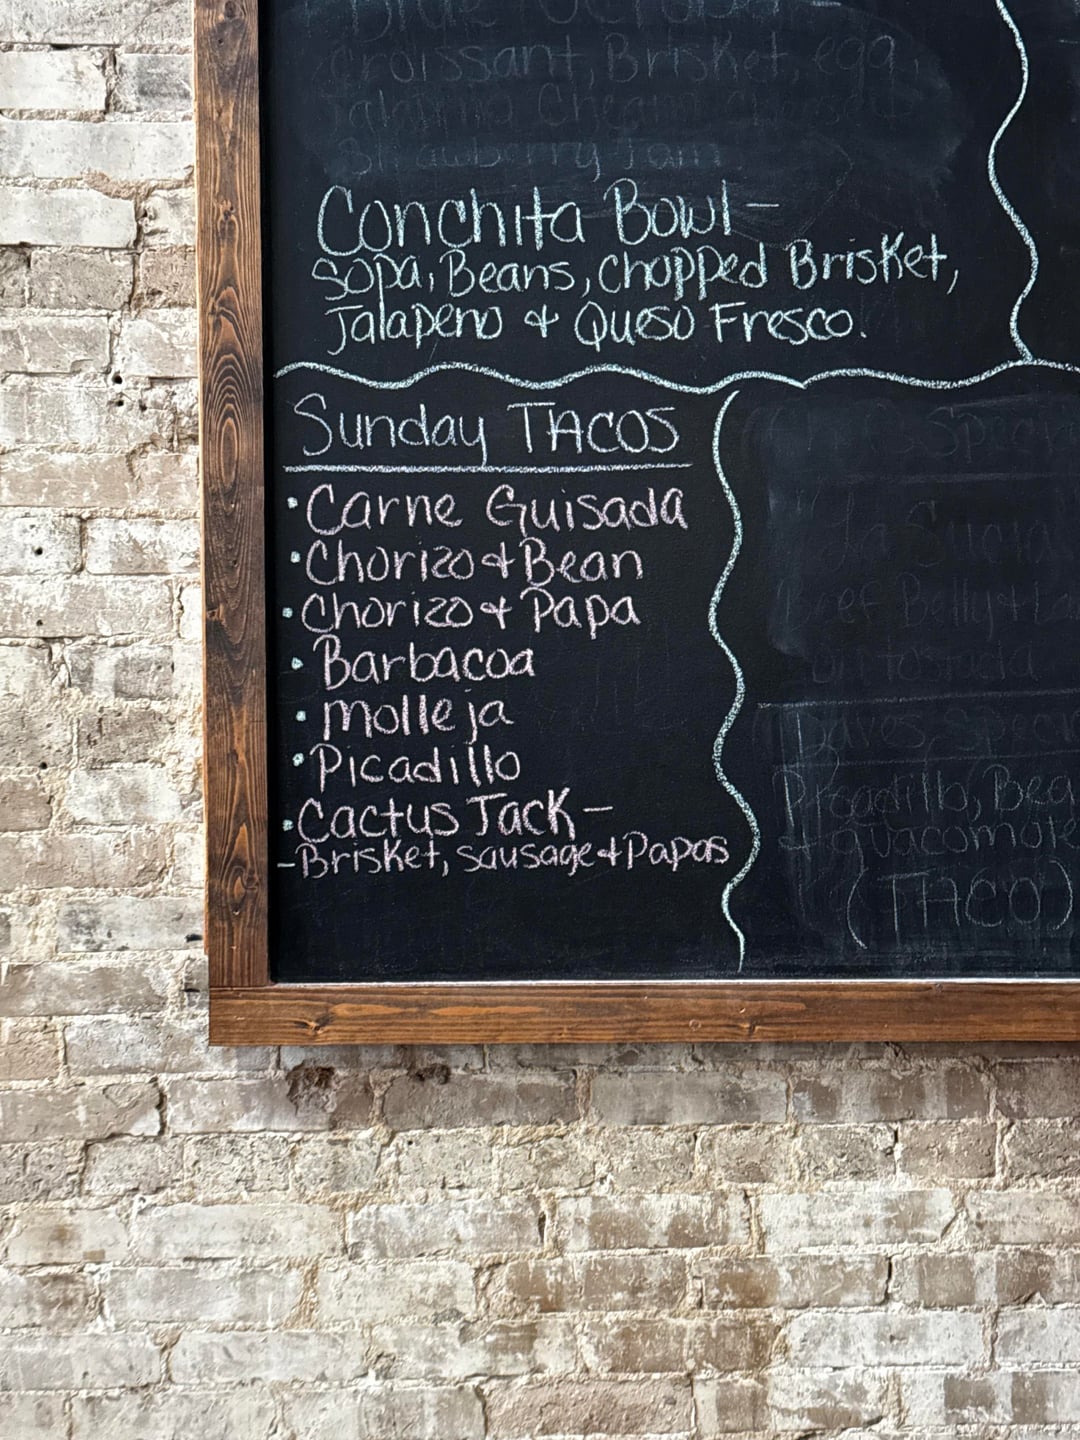 Croissant, Brisket, egg,
Strawberry Jam
Conchita Bowl -
Sopa, Beans, Chopped Brisket,
Jalapeno & Queso Fresco.
Sunday TACOS
• Carne Guisada
• Chorizo & Bean
• Chorizo & Papa
• Barbacoa
• Molleja
• Picadillo
• Cactus Jack -
- Brisket, Sausage & Papas
Beef Belly
on tostada
Daves Speci
Picadillo, Bea
& guacamole
(TACO)